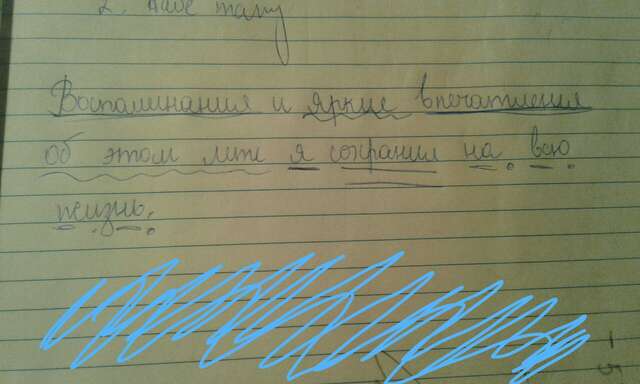 2. Have many
Воспоминания и яркие впечатления
об этом лете я сохранил на всю
жизнь.